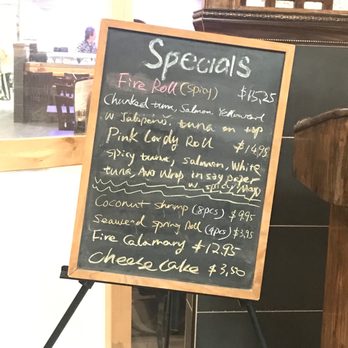 Specials
Fire Roll (Spicy) $15,25
Chunked tuna, Salmon, Yellowtail
w Jalapeno, tuna on top
Pink Lady Roll $14.95
spicy tuna, salmon, white
tuna, Avo Wrap in soy paper
w spicy mayo
Coconut shrimp (8pcs) $9.95
Seaweed spring Roll (4pcs) $3.95
Fire Calamary $12.95
Cheese Cake $3,50